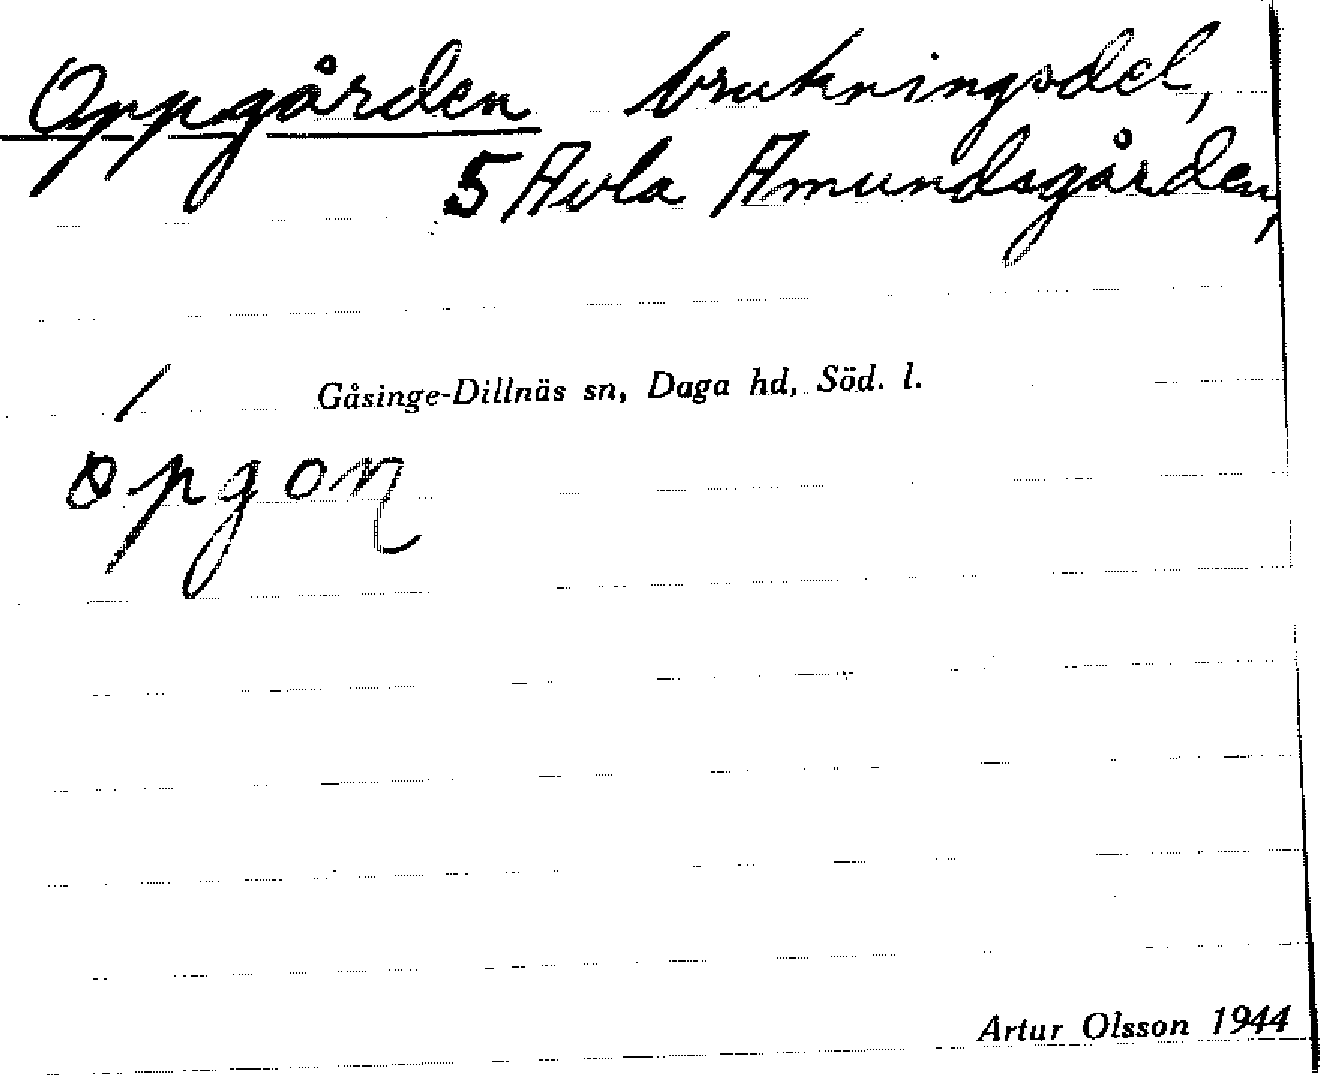 Oppgården brukningsdel,
5 Avla Amundsgården,
Gåsinge-Dillnäs sn, Daga hd, Söd. l.
ópgoɳ
Artur Olsson 1944